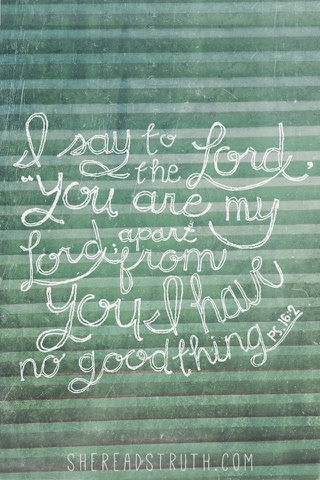 I say to
the Lord,
"You are my
Lord; apart
from
You I have
no good thing.
PS. 16:2
SHEREADSTRUTH.COM